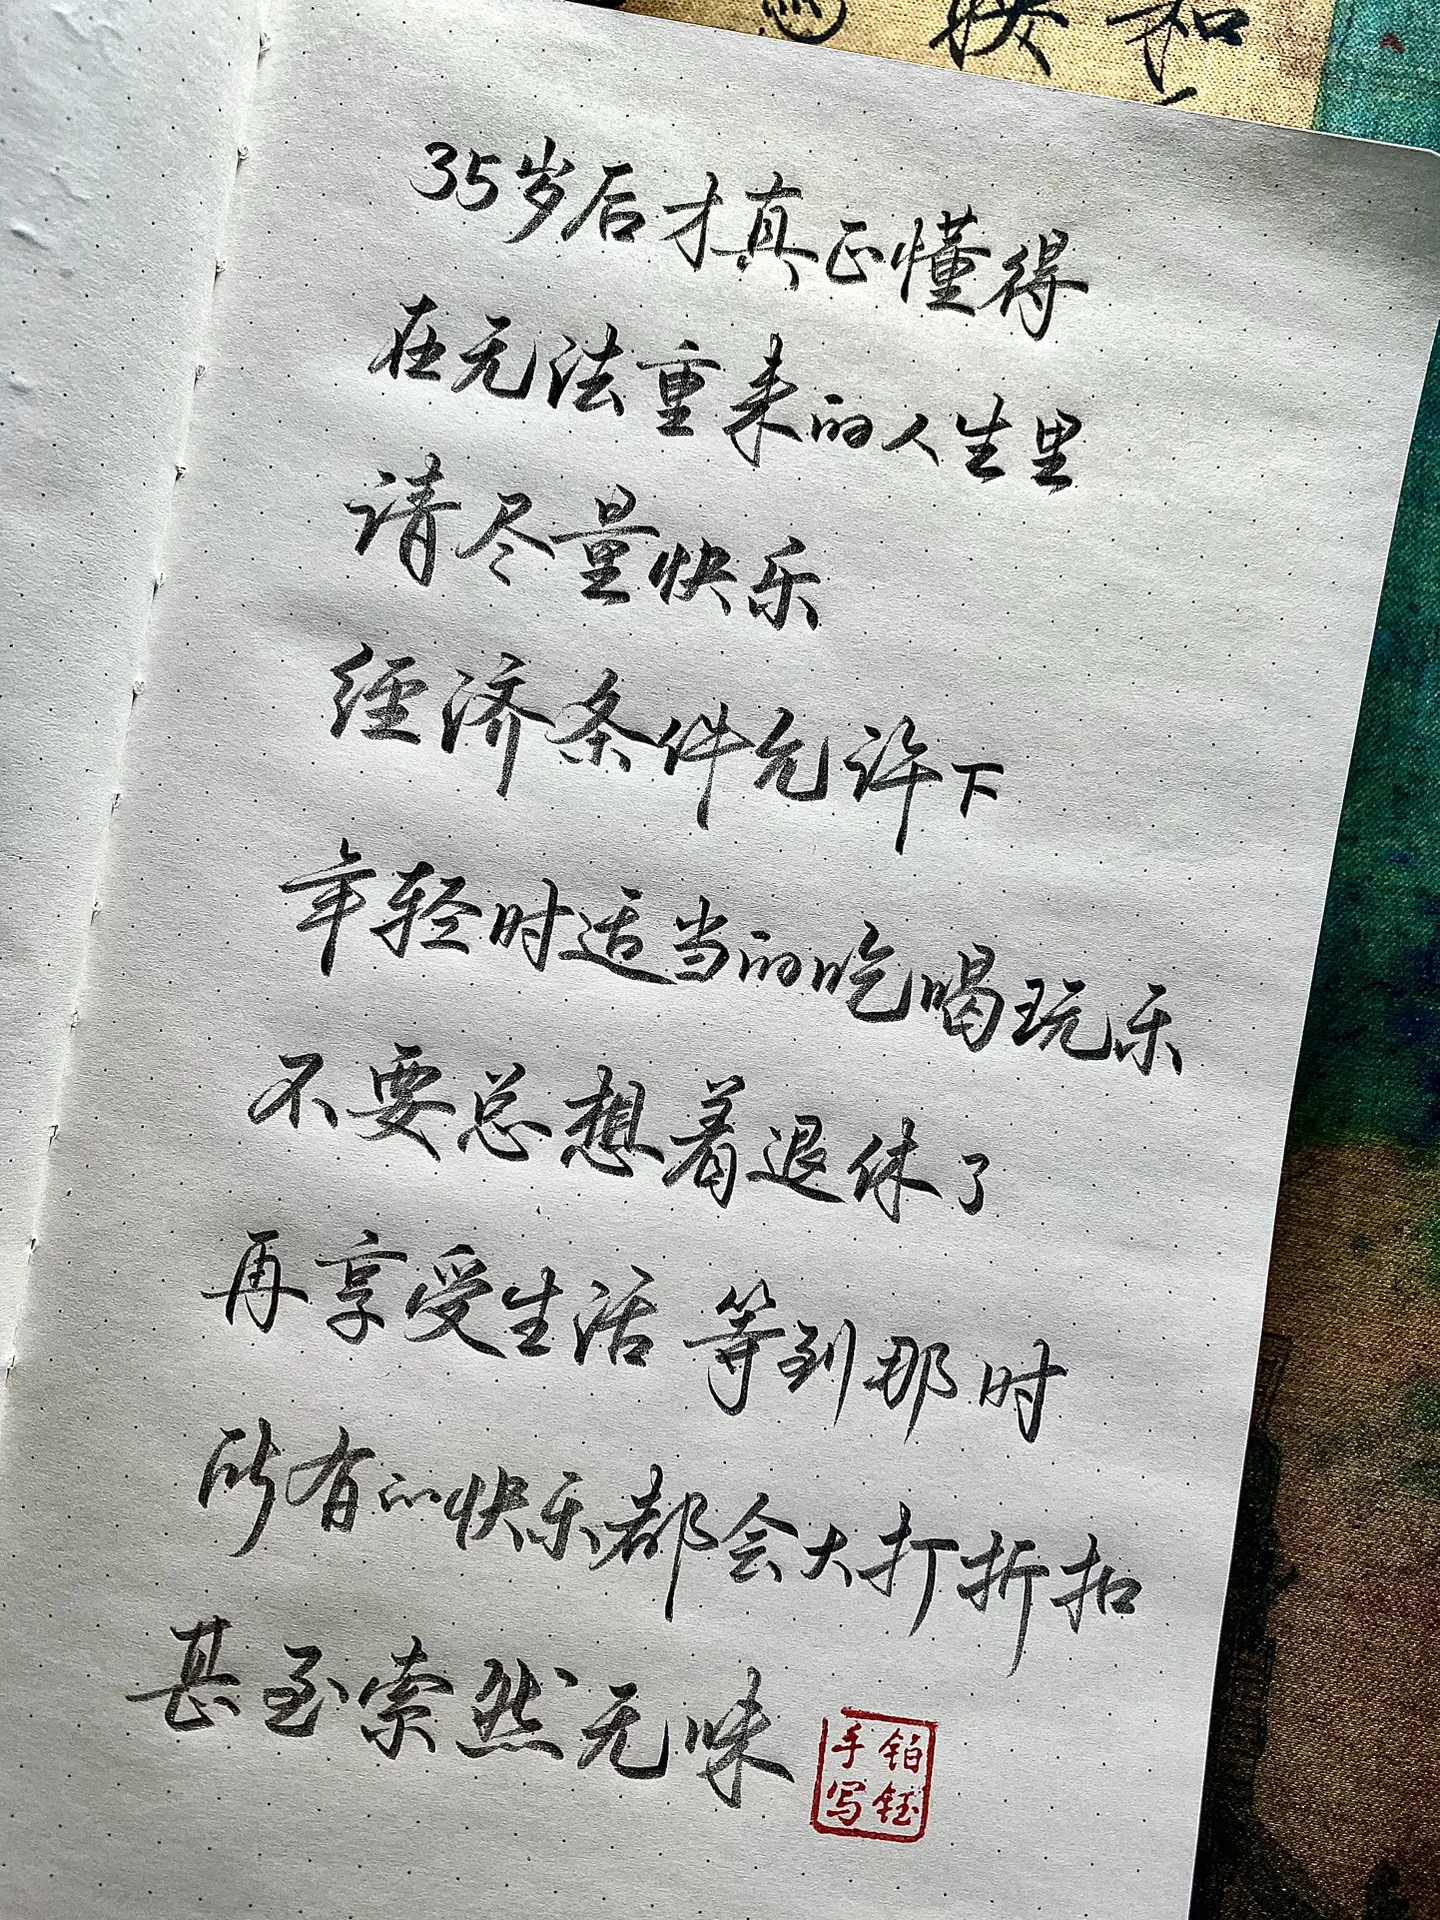 35岁后才真正懂得
在无法重来的人生里
请尽量快乐
经济条件允许下
年轻时适当的吃喝玩乐
不要总想着退休了
再享受生活 等到那时
所有的快乐都会大打折扣
甚至索然无味
铂钰
手写